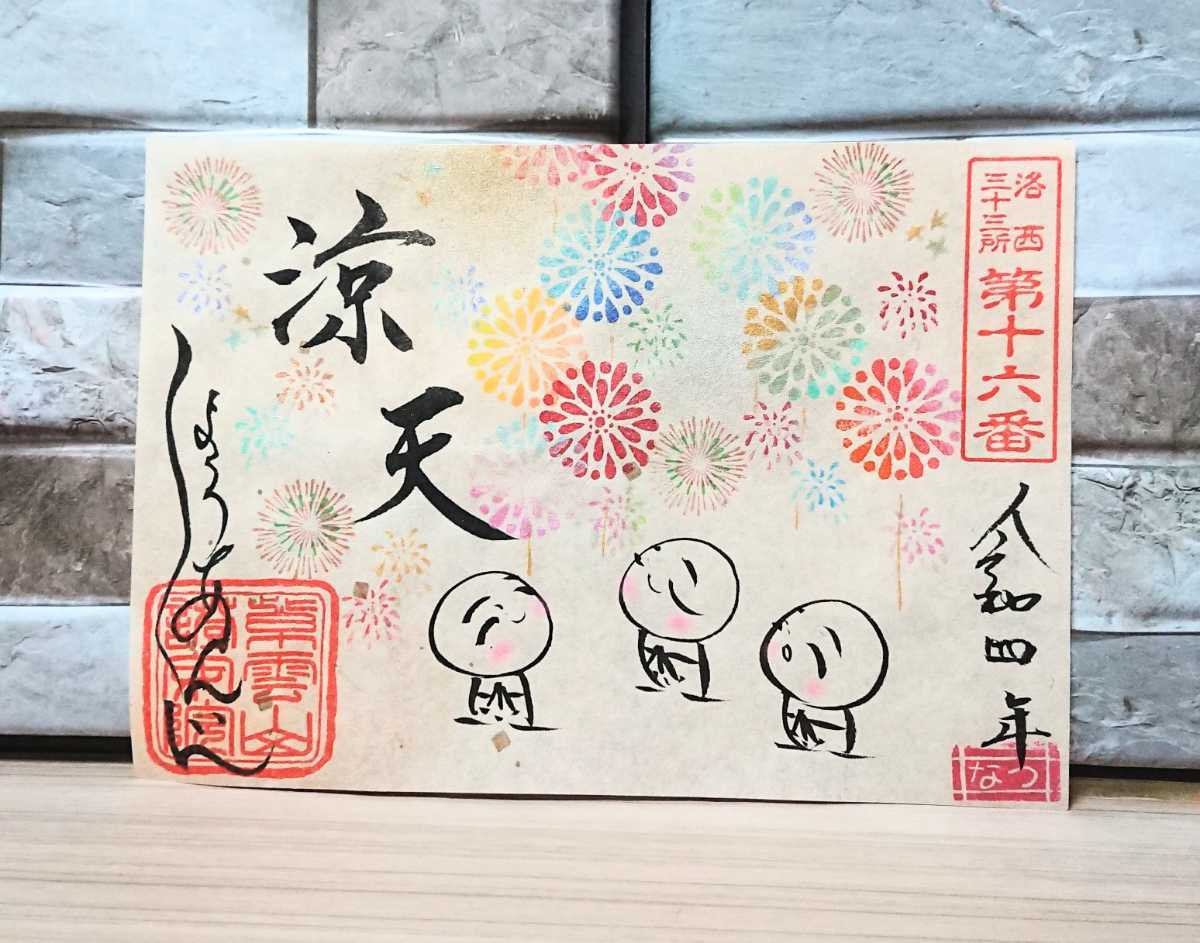 洛西
三十三所
第十六番
令和四年
なつ
涼天
しょうあんいん
紫雲山